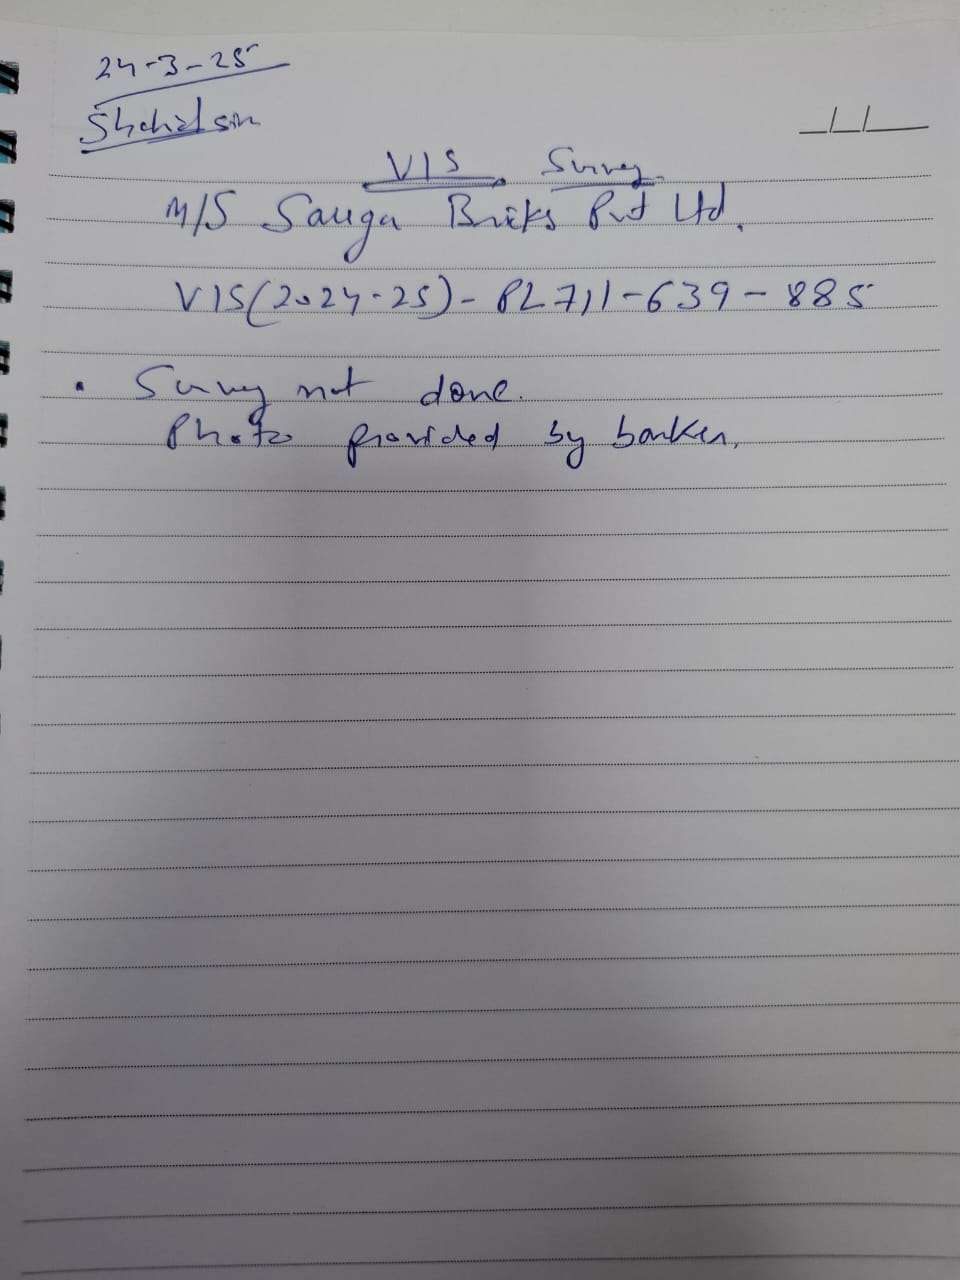 24-3-25
VIS Survey
M/S Bricks Pvt Ltd.
VIS(2024-25)-PL711-639-885
• Survey not done.
Photo provided by banker,